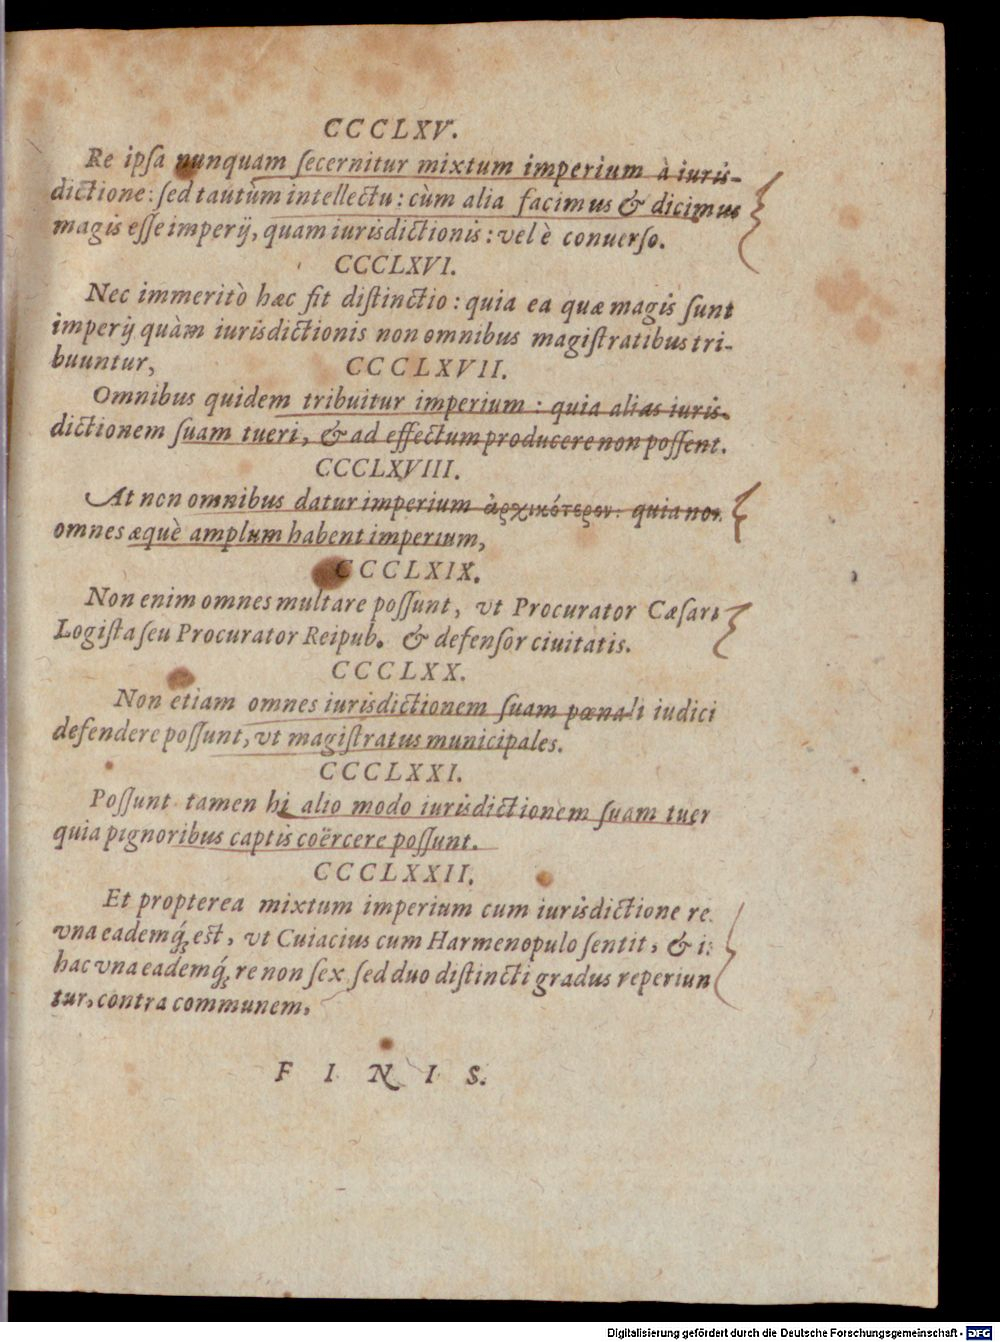 CCCLXV.
Re ipsa nunquam secernitur mixtum imperium à iuris-
dictione: sed tautùm intellectu: cùm alia facimus & dicimus
magis esse imperij, quam iurisdictionis: vel è conuerso.
CCCLXVI.
Nec immeritò hæc fit distinctio: quia ea quæ magis sunt
imperij quàm iurisdictionis non omnibus magistratibus tri-
buuntur,
CCCLXVII.
Omnibus quidem tribuitur imperium: quia alias iuris-
dictionem suam tueri, & ad effectum producere non possent.
CCCLXVIII.
At non omnibus datur imperium ἀρχικότερον: quia non
omnes æquè amplum habent imperium,
CCCLXIX.
Non enim omnes multare possunt, vt Procurator Cæsari
Logista seu Procurator Reipub. & defensor ciuitatis.
CCCLXX.
Non etiam omnes iurisdictionem suam pœnali iudici
defendere possunt, vt magistratus municipales.
CCCLXXI.
Possunt tamen hi alio modo iurisdictionem suam tuer
quia pignoribus captis coërcere possunt.
CCCLXXII.
Et propterea mixtum imperium cum iurisdictione re
vna eademq́; est, vt Cuiacius cum Harmenopulo sentit, & i
hac vna eademq́; re non sex sed duo distincti gradus reperiun
tur, contra communem,
FINIS.
Digitalisierung gefördert durch die Deutsche Forschungsgemeinschaft - DFG